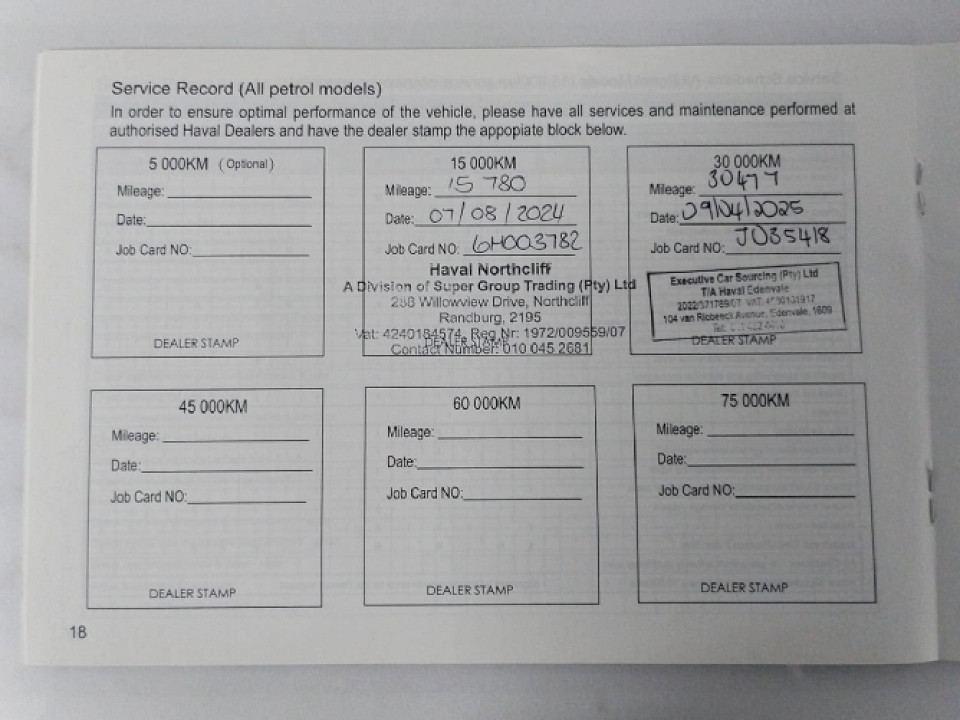 Service Record (All petrol models)
In order to ensure optimal performance of the vehicle, please have all services and maintenance performed at
authorised Haval Dealers and have the dealer stamp the appopiate block below.
5 000KM (Optional)
Mileage:
Date:
Job Card NO:
DEALER STAMP
15 000KM
Mileage: 15 780
Date: 07/08/2024
Job Card NO: 6H003782
Haval Northcliff
A Division of Super Group Trading (Pty) Ltd
288 Willowview Drive, Northcliff
Randburg, 2195
Vat: 4240184574, Reg Nr: 1972/009559/07
DEALER STAMP
Contact Number: 010 045 2681
30 000KM
Mileage: 30477
Date: 09/04/2025
Job Card NO: J035418
Executive Car Sourcing (Pty) Ltd
T/A Haval Edenvale
104 van Riebeeck Avenue, Edenvale, 1609
DEALER STAMP
45 000KM
Mileage:
Date:
Job Card NO:
DEALER STAMP
60 000KM
Mileage:
Date:
Job Card NO:
DEALER STAMP
75 000KM
Mileage:
Date:
Job Card NO:
DEALER STAMP
18